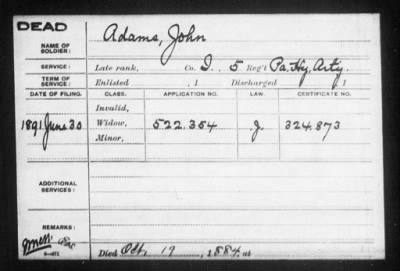 DEAD
NAME OF SOLDIER: Adams, John
SERVICE: Late rank, Co. I, 5 Reg't Pa. Hy. Arty.
TERM OF SERVICE: Enlisted , 1 Discharged 1
DATE OF FILING. CLASS. APPLICATION NO. LAW. CERTIFICATE NO.
Invalid,
1891 June 30 Widow, 522.354 J. 324.873
Minor,
ADDITIONAL SERVICES:
REMARKS:
Died Oct. 19, 1884, at